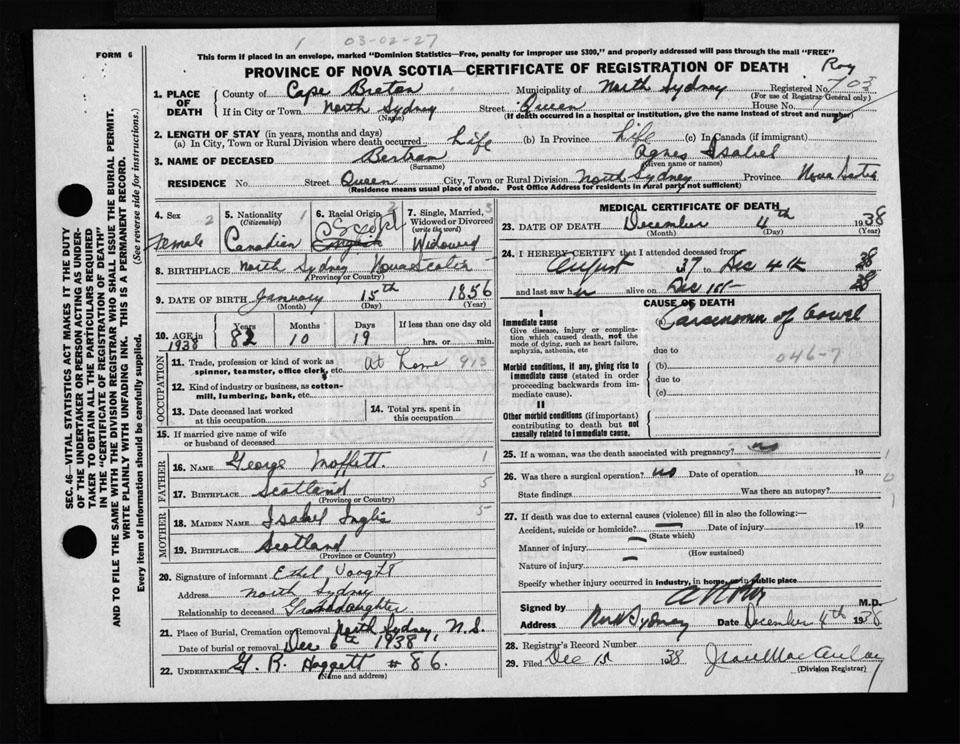 03-02-27
FORM 6
This form if placed in an envelope, marked "Dominion Statistics—Free, penalty for improper use $300," and properly addressed will pass through the mail "FREE"
PROVINCE OF NOVA SCOTIA—CERTIFICATE OF REGISTRATION OF DEATH
1. PLACE OF DEATH
County of Cape Breton Municipality of North Sydney Registered No. 703
(For use of Registrar General only)
If in City or Town North Sydney Street Queen House No.
(Name) (If death occurred in a hospital or institution, give the name instead of street and number)
2. LENGTH OF STAY (in years, months and days)
(a) In City, Town or Rural Division where death occurred Life (b) In Province Life (c) In Canada (if immigrant)
3. NAME OF DECEASED Bertram Agnes Isabel
(Surname) (Given name or names)
RESIDENCE No. Street Queen City, Town or Rural Division North Sydney Province Nova Scotia
(Residence means usual place of abode. Post Office Address for residents in rural parts not sufficient)
4. Sex Female
5. Nationality (Citizenship) Canadian
6. Racial Origin Scotch
7. Single, Married, Widowed or Divorced (write the word) Widowed
8. BIRTHPLACE North Sydney Nova Scotia
(Province or Country)
9. DATE OF BIRTH January 15th 1856
(Month) (Day) (Year)
10. AGE in 1938 Years 82 Months 10 Days 19 If less than one day old hrs. or min.
OCCUPATION
11. Trade, profession or kind of work as spinner, teamster, office clerk, etc. At Home 913
12. Kind of industry or business, as cotton-mill, lumbering, bank, etc.
13. Date deceased last worked at this occupation
14. Total yrs. spent in this occupation
15. If married give name of wife or husband of deceased
FATHER
16. NAME George Moffett
17. BIRTHPLACE Scotland
(Province or Country)
MOTHER
18. MAIDEN NAME Isabel Inglis
19. BIRTHPLACE Scotland
(Province or Country)
20. Signature of informant Ethel Vooght
Address North Sydney
Relationship to deceased Granddaughter
21. Place of Burial, Cremation or Removal North Sydney, N.S.
Date of burial or removal Dec 6th 1938
22. UNDERTAKER G. R. Haggett #86.
(Name and Address)
MEDICAL CERTIFICATE OF DEATH
23. DATE OF DEATH December 4th 1938
(Month) (Day) (Year)
24. I HEREBY CERTIFY that I attended deceased from
August 37 to Dec 4th 38
and last saw her alive on Dec 1st 38
CAUSE OF DEATH
I
Immediate cause
Give disease, injury or complication which caused death, not the mode of dying, such as heart failure, asphyxia, asthenia, etc
(a) Carcinoma of bowel
due to
046-7
Morbid conditions, if any, giving rise to immediate cause (stated in order proceeding backwards from immediate cause).
(b)
due to
(c)
II
Other morbid conditions (if important) contributing to death but not causally related to immediate cause.
25. If a woman, was the death associated with pregnancy? no
26. Was there a surgical operation? no Date of operation 19
State findings Was there an autopsy?
27. If death was due to external causes (violence) fill in also the following:—
Accident, suicide or homicide? Date of injury 19
(State which)
Manner of injury
(How sustained)
Nature of injury
Specify whether injury occurred in industry, in home, or in public place
Signed by M.D.
Address North Sydney Date December 4th 1938
28. Registrar's Record Number
29. Filed Dec 15 1938
(Division Registrar)
SEC. 46—VITAL STATISTICS ACT MAKES IT THE DUTY
OF THE UNDERTAKER OR PERSON ACTING AS UNDER-
TAKER TO OBTAIN ALL THE PARTICULARS REQUIRED
IN THE "CERTIFICATE OF REGISTRATION OF DEATH"
AND TO FILE THE SAME WITH THE DIVISION REGISTRAR WHO SHALL ISSUE THE BURIAL PERMIT.
WRITE PLAINLY WITH UNFADING INK. THIS IS A PERMANENT RECORD.
Every item of information should be carefully supplied. (See reverse side for instructions.)